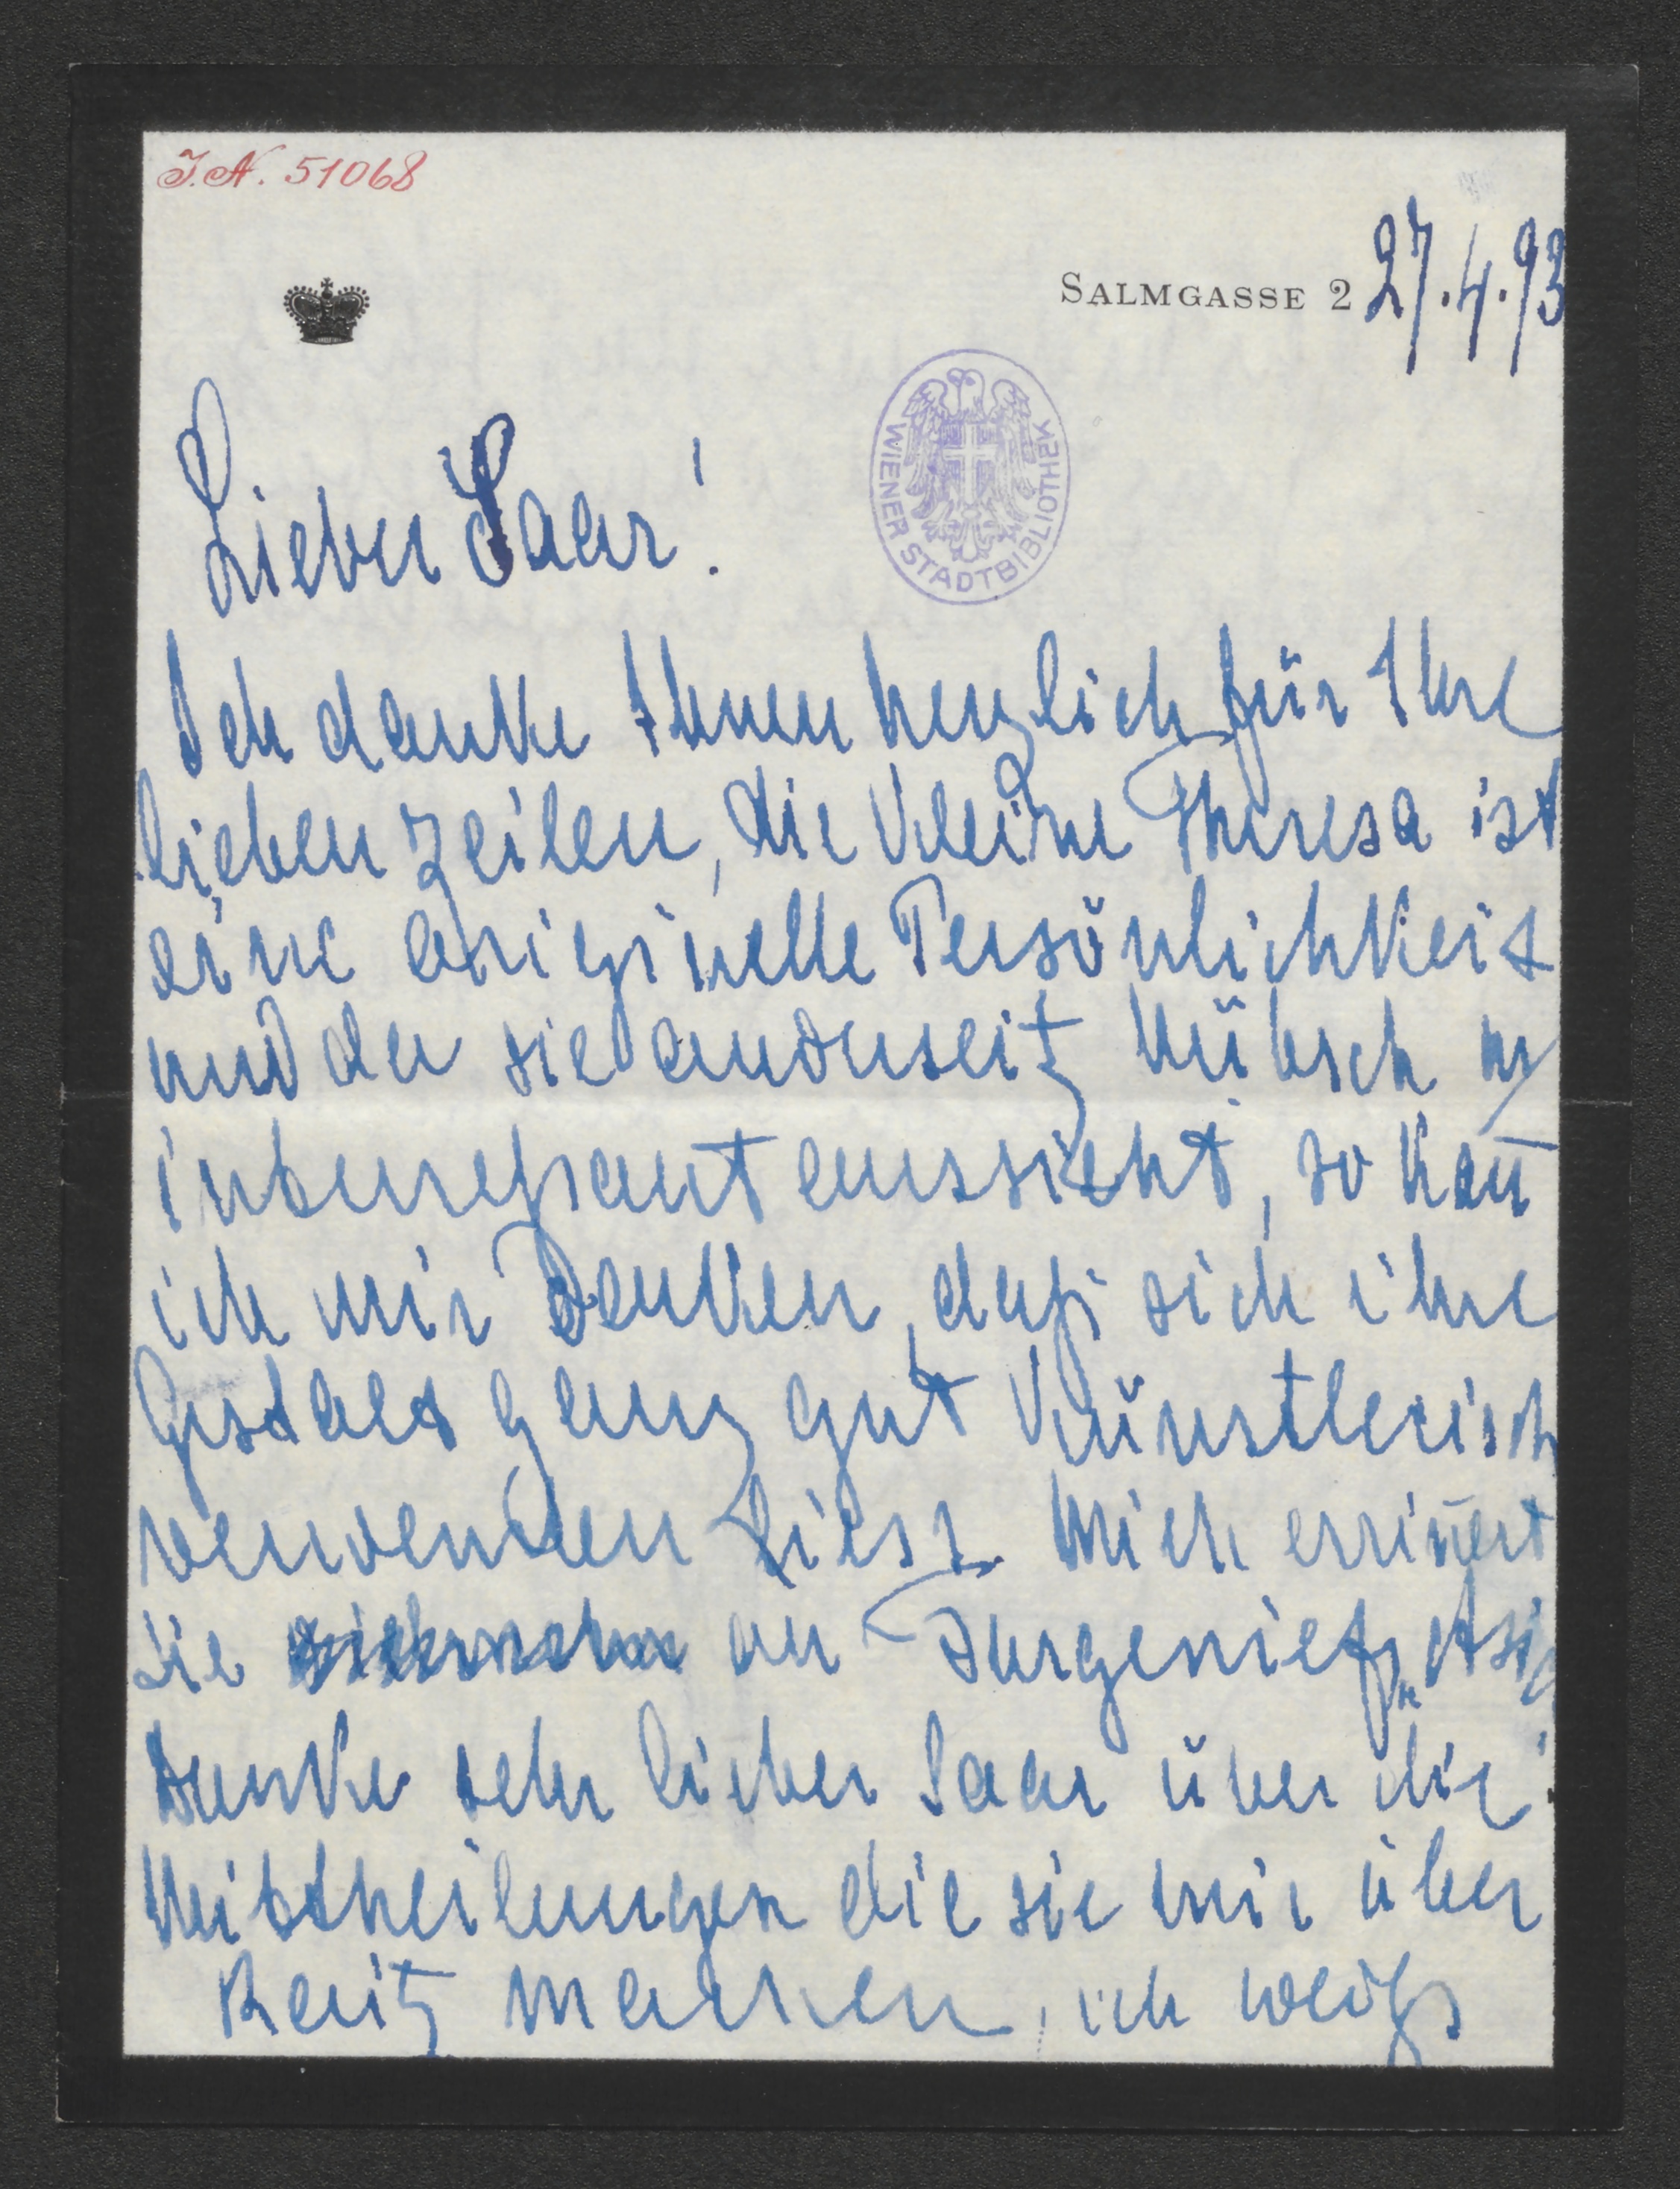 I.N. 51068
SALMGASSE 2 27.4.93
WIENER STADTBIBLIOTHEK
Lieber Saar!
Ich danke Ihnen herzlich für Ihre
lieben Zeilen, die kleine Theresa ist
eine originelle Persönlichkeit
und da sie anderseitz hübsch u
interessant aussieht, so kan̄
ich mir denken, daß sich ihre
Gestalt ganz gut künstlerisch
verwenden liess. Mich errin̄ert
sie an Turgenief „Asja
Danke sehr lieber Saar über die
Mittheilungen die sie mir über
Reitz machen, ich weiß